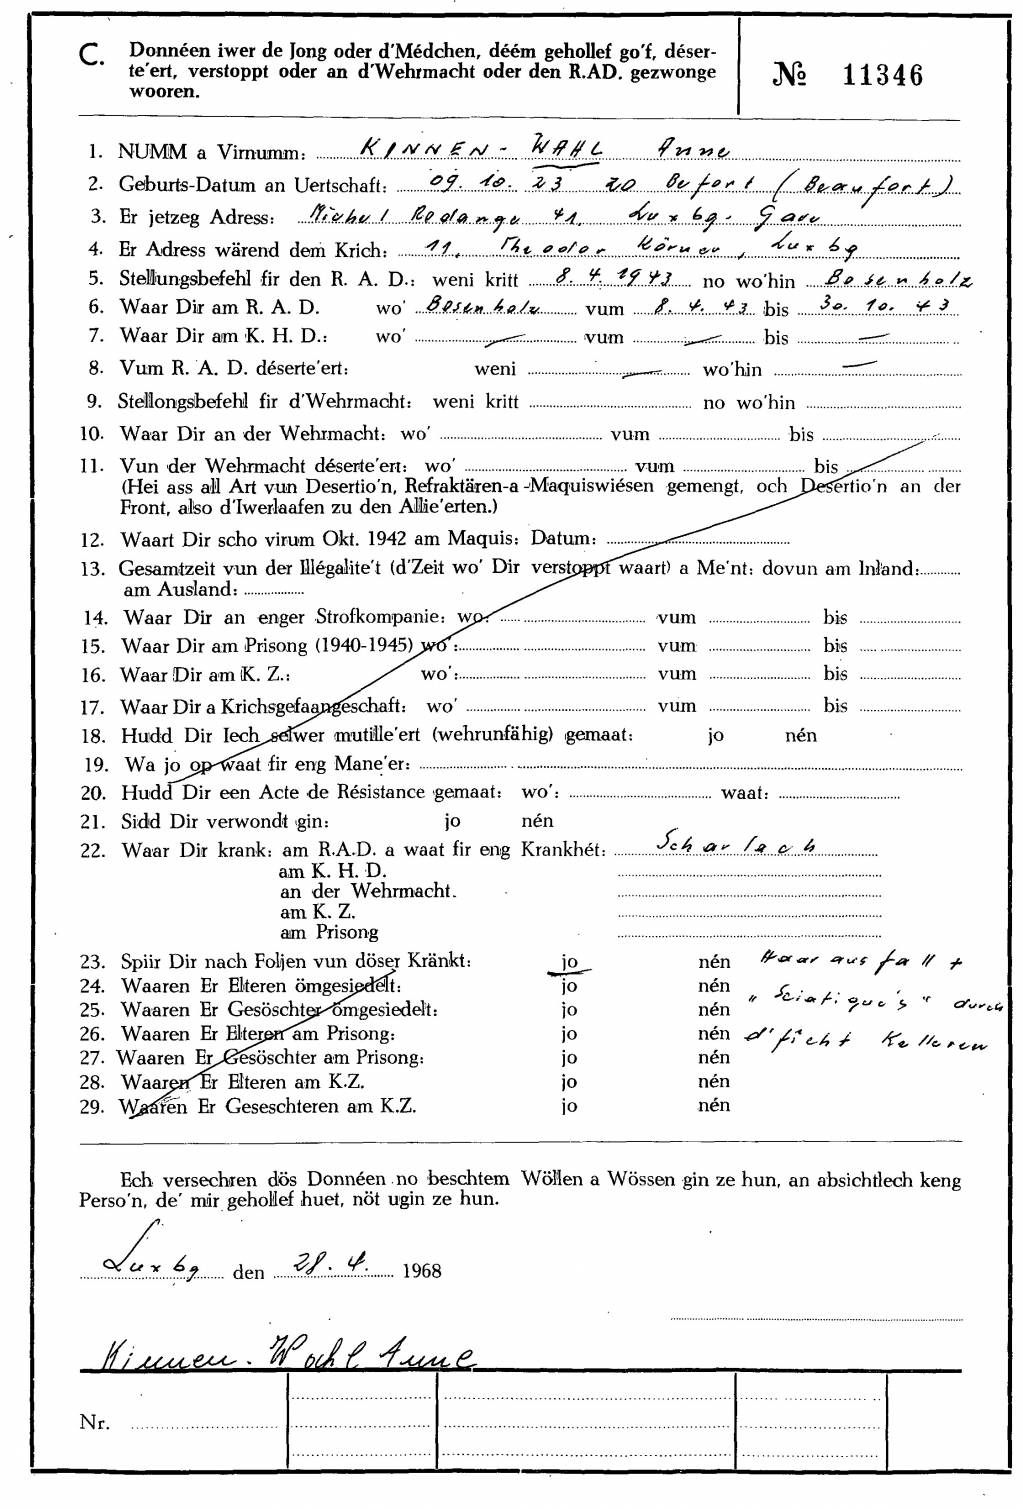 C. Donnéen iwer de Jong oder d'Médchen, déém gehollef go'f, déser-
te'ert, verstoppt oder an d'Wehrmacht oder den R.AD. gezwonge
wooren.
№ 11346
1. NUMM a Virnumm: KINNEN - WAHL Anne
2. Geburts-Datum an Uertschaft: 09. 10. 23 zo Befort (Beaufort)
3. Er jetzeg Adress: Michel Rodange 41. Luxbg. Gare
4. Er Adress wärend dem Krich: 11, Theodor Körner, Luxbg
5. Stellungsbefehl fir den R. A. D.: weni kritt 8. 4. 1943 no wo'hin Bosenholz
6. Waar Dir am R. A. D. wo' Bosenholz vum 8. 4. 43 bis 30. 10. 43
7. Waar Dir am K. H. D.: wo' — vum — bis —
8. Vum R. A. D. déserte'ert: weni — wo'hin —
9. Stellongsbefehl fir d'Wehrmacht: weni kritt no wo'hin
10. Waar Dir an der Wehrmacht: wo' vum bis
11. Vun der Wehrmacht déserte'ert: wo' vum bis
(Hei ass all Art vun Desertio'n, Refraktären-a -Maquiswiésen gemengt, och Desertio'n an der
Front, also d'Iwerlaafen zu den Allie'erten.)
12. Waart Dir scho virum Okt. 1942 am Maquis: Datum:
13. Gesamtzeit vun der Illégalite't (d'Zeit wo' Dir verstoppt waart) a Me'nt: dovun am Inland:
am Ausland:
14. Waar Dir an enger Strofkompanie: wo: vum bis
15. Waar Dir am Prisong (1940-1945) wo': vum bis
16. Waar Dir am K. Z.: wo': vum bis
17. Waar Dir a Krichsgefaangeschaft: wo' vum bis
18. Hudd Dir Iech selwer mutille'ert (wehrunfähig) gemaat: jo nén
19. Wa jo op waat fir eng Mane'er:
20. Hudd Dir een Acte de Résistance gemaat: wo': waat:
21. Sidd Dir verwondt gin: jo nén
22. Waar Dir krank: am R.A.D. a waat fir eng Krankhét: Scharlach
am K. H. D.
an der Wehrmacht.
am K. Z.
am Prisong
23. Spiir Dir nach Foljen vun döser Kränkt: jo nén Haarausfall +
24. Waaren Er Elteren ömgesiedelt: jo nén
25. Waaren Er Gesöschter ömgesiedelt: jo nén "Sciatique's" durch
26. Waaren Er Elteren am Prisong: jo nén d'ficht Kelleren
27. Waaren Er Gesöschter am Prisong: jo nén
28. Waaren Er Elteren am K.Z. jo nén
29. Waaren Er Geseschteren am K.Z. jo nén
Ech versechren dös Donnéen no beschtem Wöllen a Wössen gin ze hun, an absichtlech keng
Perso'n, de' mir gehollef huet, nöt ugin ze hun.
Luxbg den 28. 4. 1968
Kinnen. Wahl Anne
Nr.